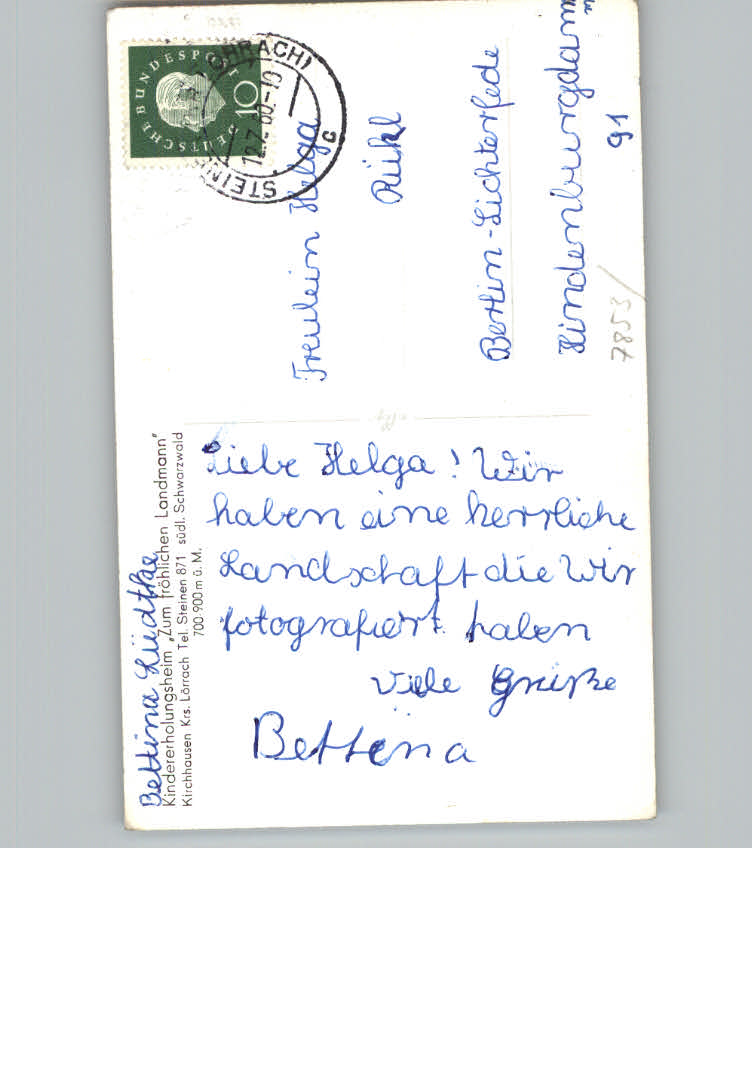 Bettina Lüdtke
Kindererholungsheim „Zum fröhlichen Landmann"
Kirchhausen Krs. Lörrach Tel. Steinen 871 südl. Schwarzwald
700-900 m ü. M.
Liebe Helga! Wir
haben eine herrliche
Landschaft die Wir
fotografiert haben
Viele Grüße
Bettina
DEUTSCHE BUNDESPOST
10
12.7.60.-10
c
Freulein Helga
Rühl
Berlin-Lichterfede
Hindenburgdamm
91
7853/